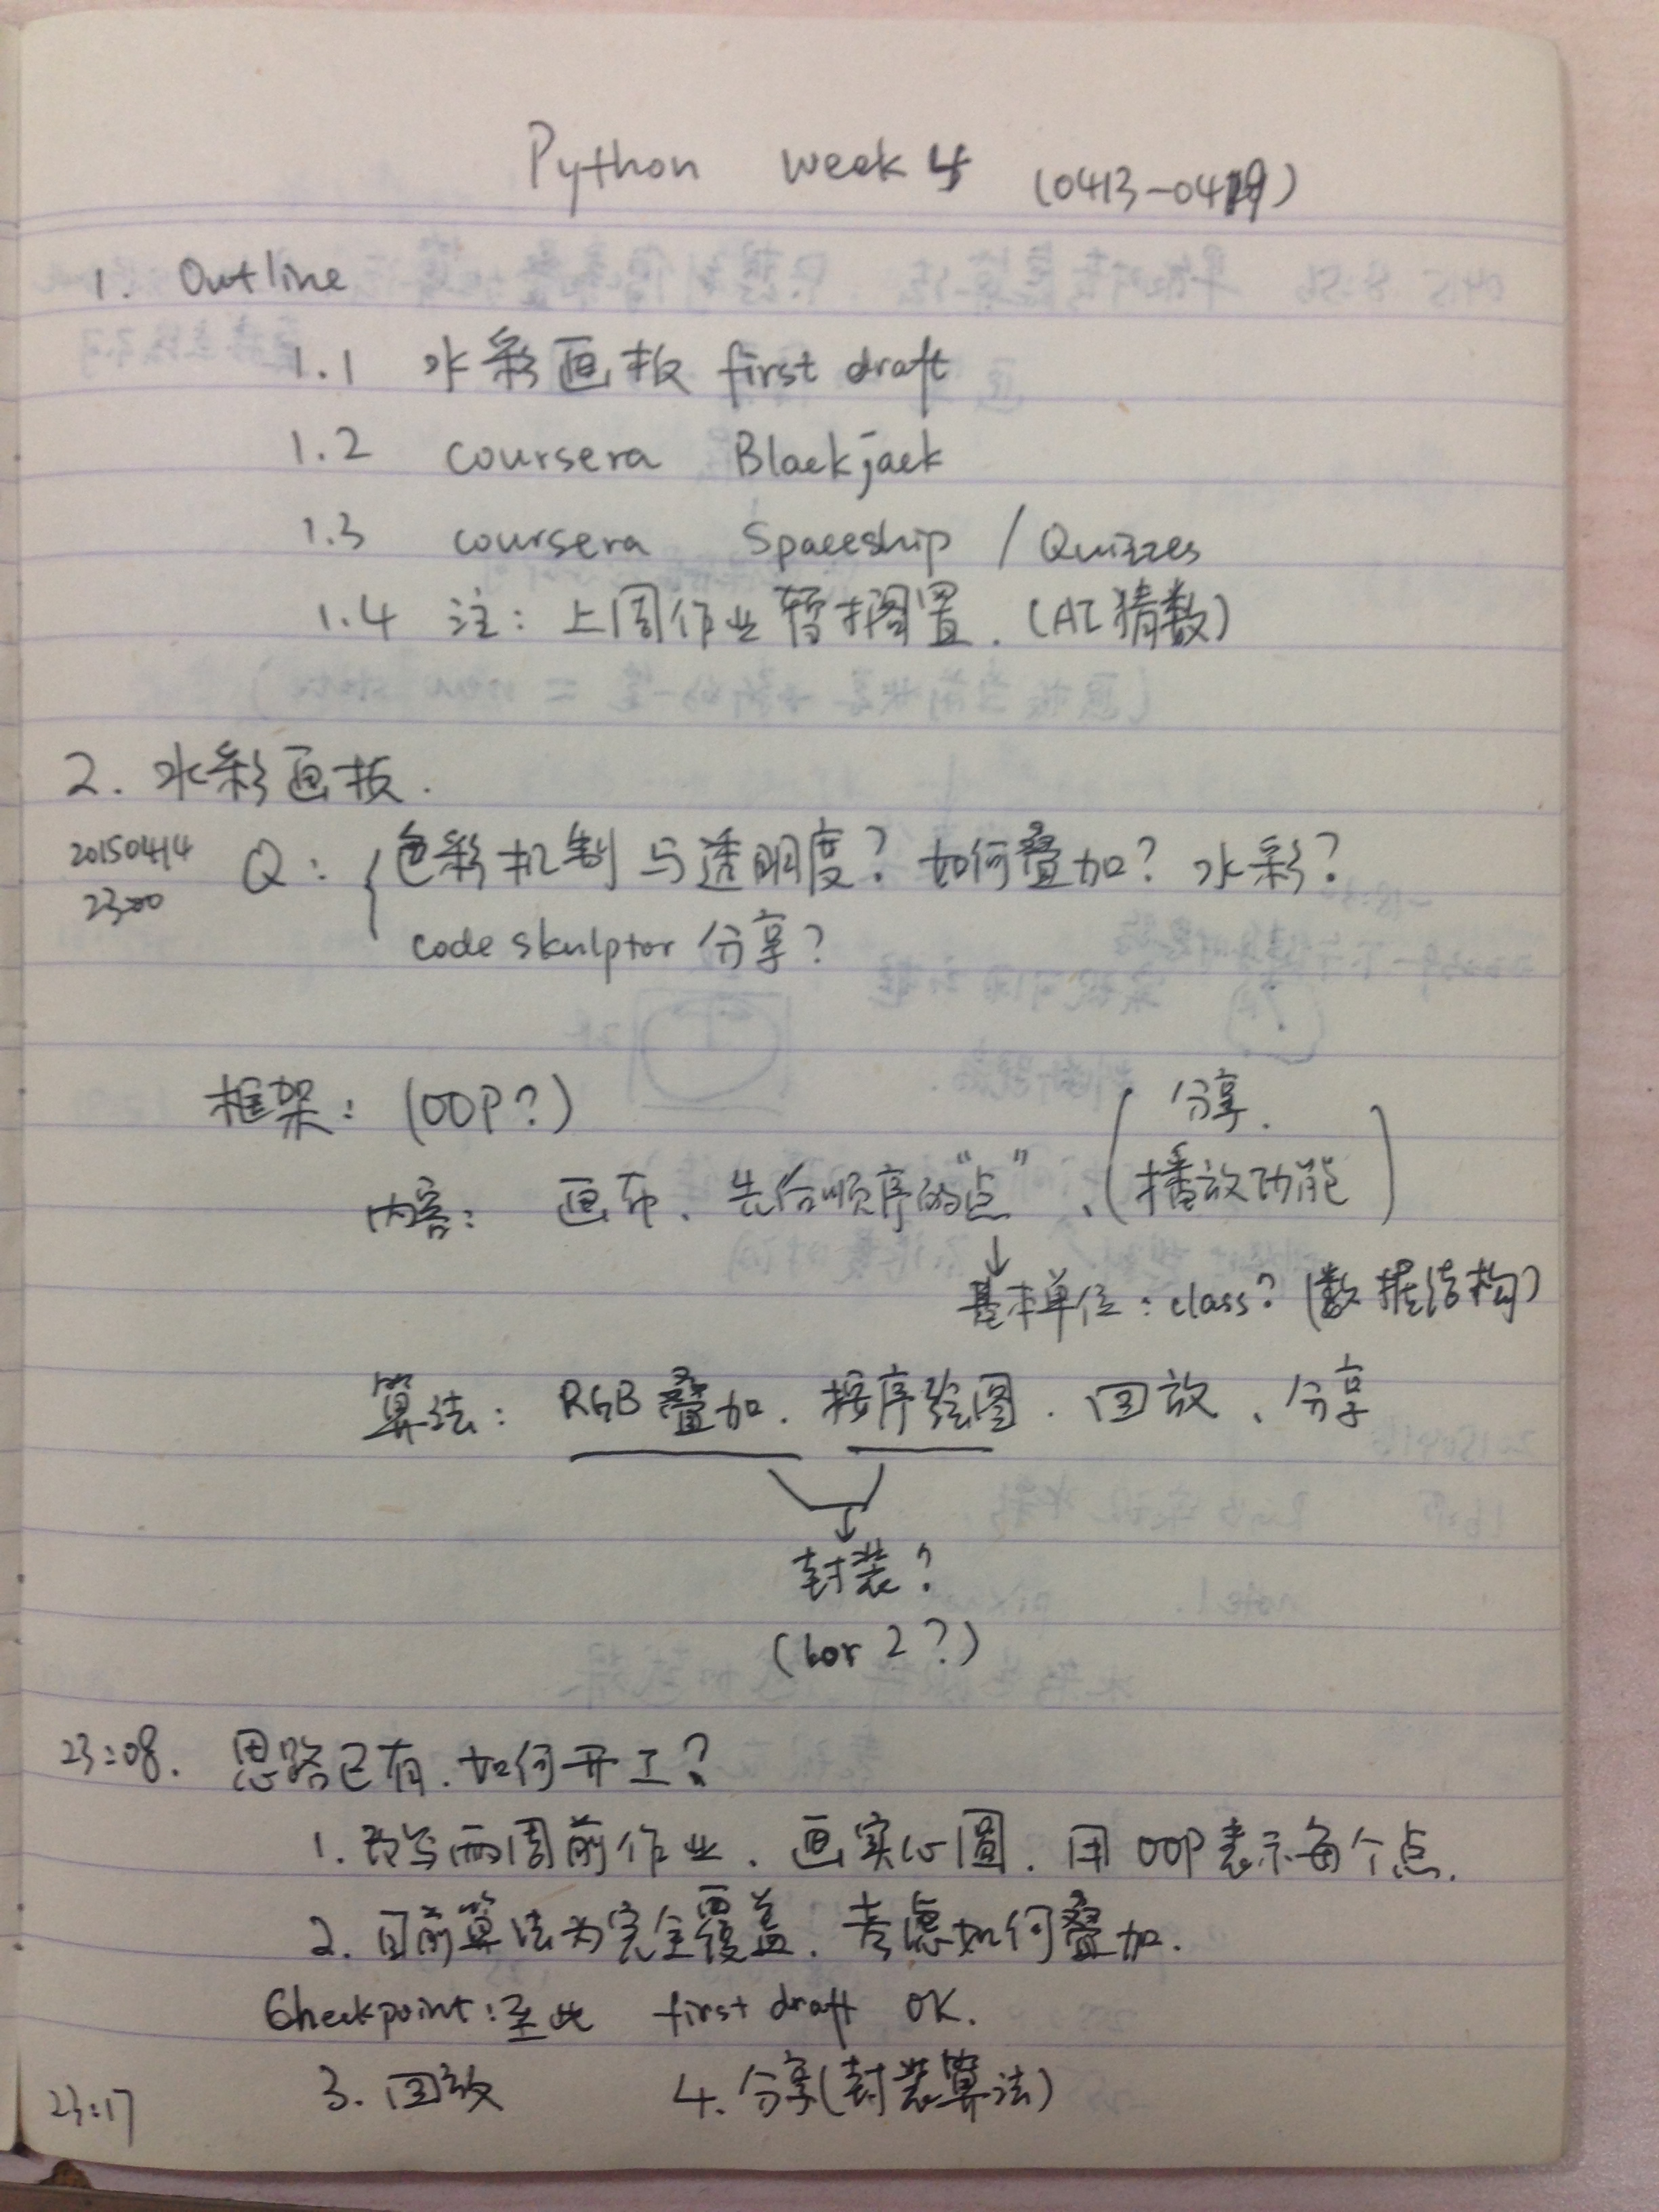 Python week 4 (0413-0419)
1. Outline
1.1 水彩画板 first draft
1.2 coursera Blackjack
1.3 coursera Spaceship / Quizzes
1.4 注：上周作业暂搁置.（AI猜数）
2. 水彩画板.
20150414
23:00
Q：色彩机制与透明度？如何叠加？水彩？
codeskulptor 分享？
框架：(OOP?)
分享.
内容：画布、先后顺序的“点”、(播放功能)
↓
基本单位：class？(数据结构)
算法：RGB叠加、按序绘图、回放、分享
封装？
(1 or 2?)
23:08. 思路已有.如何开工？
1.改写两周前作业、画实心圆.用OOP表示每个点.
2.目前算法为完全覆盖.考虑如何叠加.
Checkpoint：至此 first draft OK.
3.回放 4.分享(封装算法)
23:17